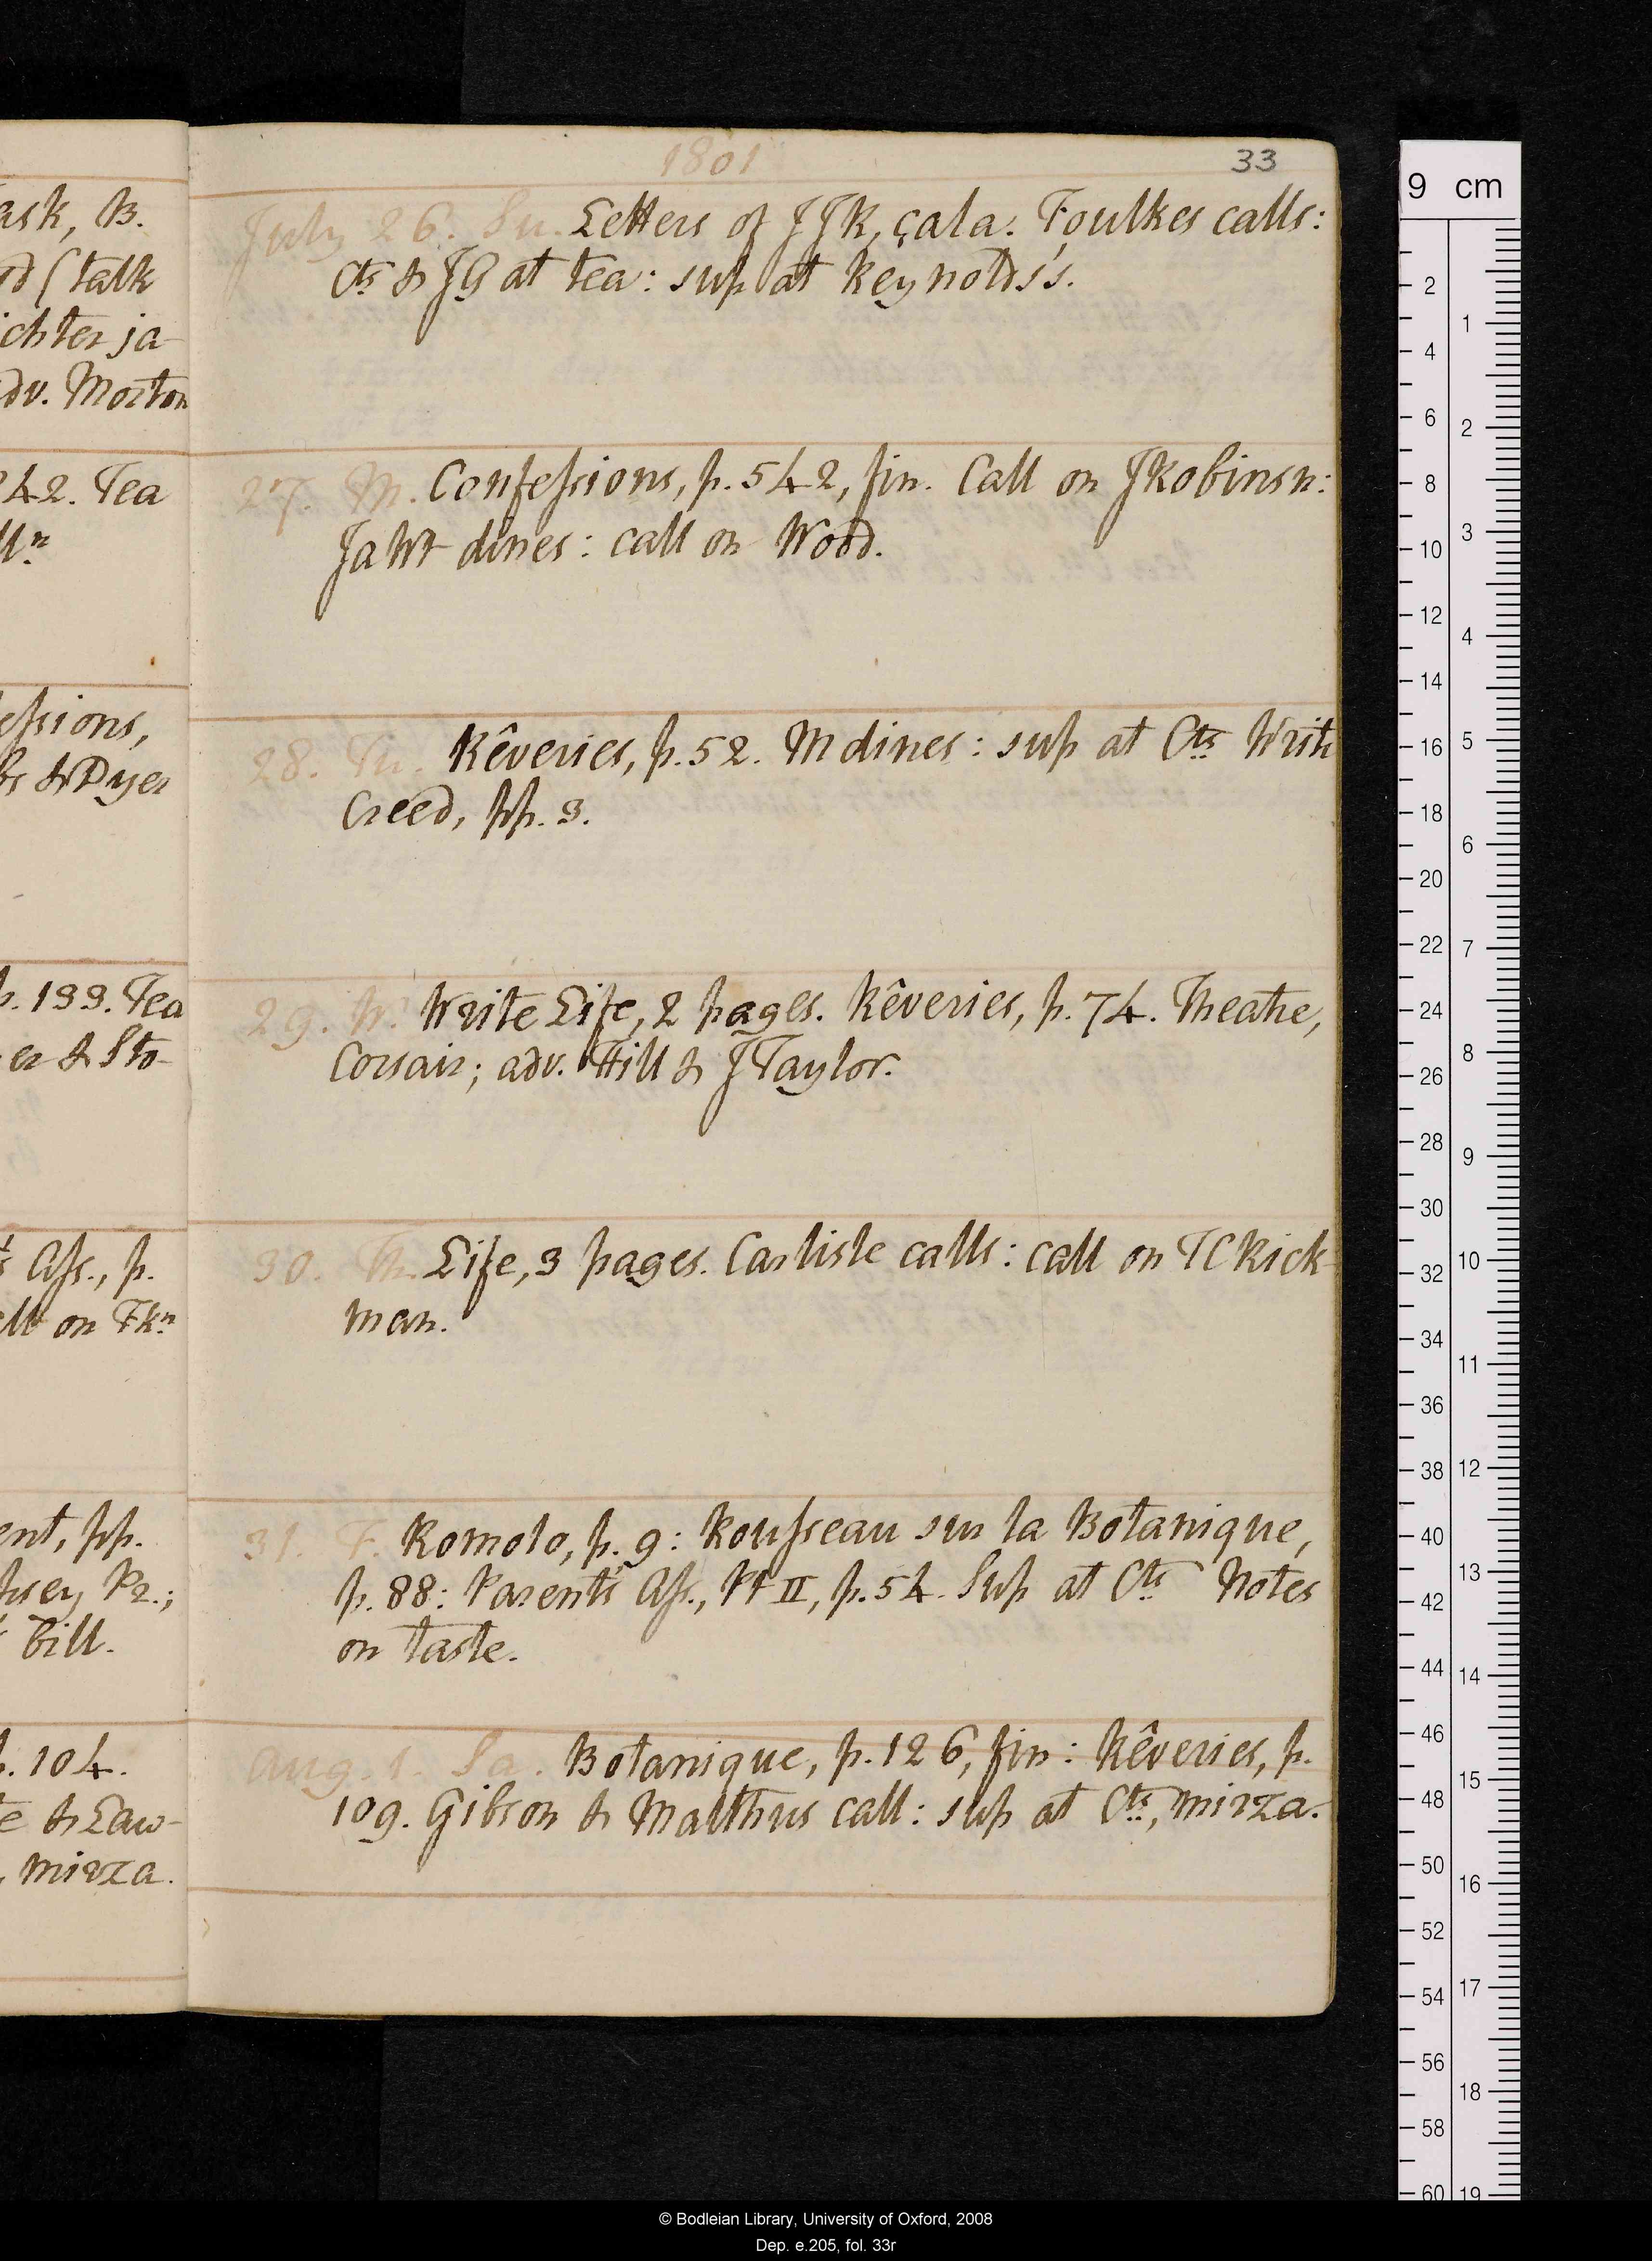 1801
33
July 26. Su. Letters of JJR, çala. Foulkes calls:
Cts & JG at tea: sup at Reynolds's.
27. M. Confessions, p. 542, fin. Call on JRobinsn:
JaWt dines: call on Wood.
28. Tu. Rêveries, p. 52. M dines: sup at Cts. Write
Creed, pp. 3.
29. W. Write Life, 2 pages. Rêveries, p. 74. Theatre,
Corsair; adv. Hill & JTaylor.
30. Th. Life, 3 pages. Carlisle calls: call on TCRick-
man.
31. F. Romolo, p. 9: Rousseau sur la Botanique,
p. 88: Parent's Ass., Pt II, p. 54. Sup at Cts. Notes
on taste.
Aug. 1. Sa. Botanique, p. 126, fin: Rêveries, p.
109. Gibson & Malthus call: sup at Cts, mirza.
ask, B.
d (talk
ichter ja-
adv. Morton
242. Tea
lln
essions,
& Dyer
p. 199. Tea
er & Sto-
's Ass., p.
all on Fkn
ent, pp.
hsey Pr.;
bill.
p. 104.
te & Law-
, mirza.
9 cm
2
4
6
8
10
12
14
16
18
20
22
24
26
28
30
32
34
36
38
40
42
44
46
48
50
52
54
56
58
60
1
2
3
4
5
6
7
8
9
10
11
12
13
14
15
16
17
18
19
© Bodleian Library, University of Oxford, 2008
Dep. e.205, fol. 33r